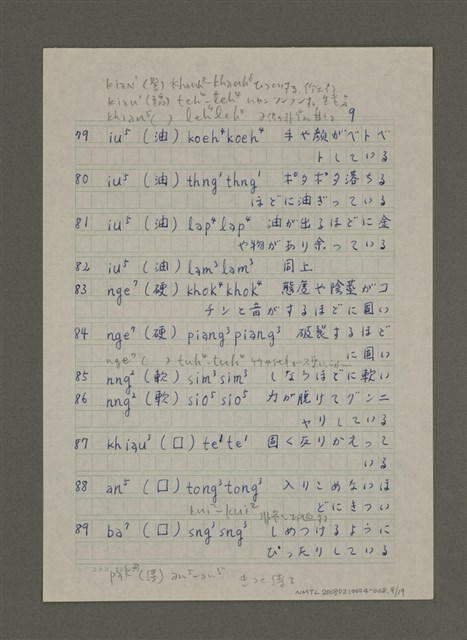 kian¹ (堅) khauh⁸-khauh⁸
kiau¹ teh⁴-teh⁴
khian⁵ ( ) leh⁴leh⁴
9
79 iu⁵ (油) koeh⁴koeh⁴ 手や顔がベトベ
トしている
80 iu⁵ (油) thng¹thng¹ ポタポタ落ちる
ほどに油ぎっている
81 iu⁵ (油) lap⁴lap⁴ 油が出るほどに金
や物があり余っている
82 iu⁵ (油) lam³lam³ 同上
83 nge⁷ (硬) khok⁴khok⁴ 態度や陰茎がコ
チンと音がするほどに固い
84 nge⁷ (硬) piang³piang³ 破裂するほど
に固い
nge⁷ ( ) tuh⁴-tuh⁴
85 nng² (軟) sim³sim³ しなうほどに軟い
86 nng² (軟) sio⁵sio⁵ 力が脱けてグンニ
ャリしている
87 khiau³ (口) te¹te¹ 固く反りかえって
いる
88 an⁵ (口) tong³tong³ 入りこめないほ
どにきつい
kui²-kui²
89 ba⁷ (口) sng³sng³ しめつけるように
ぴったりしている
pak⁸ an⁵-an⁵ きつく縛る
NMTL20080210004-002, 9/19